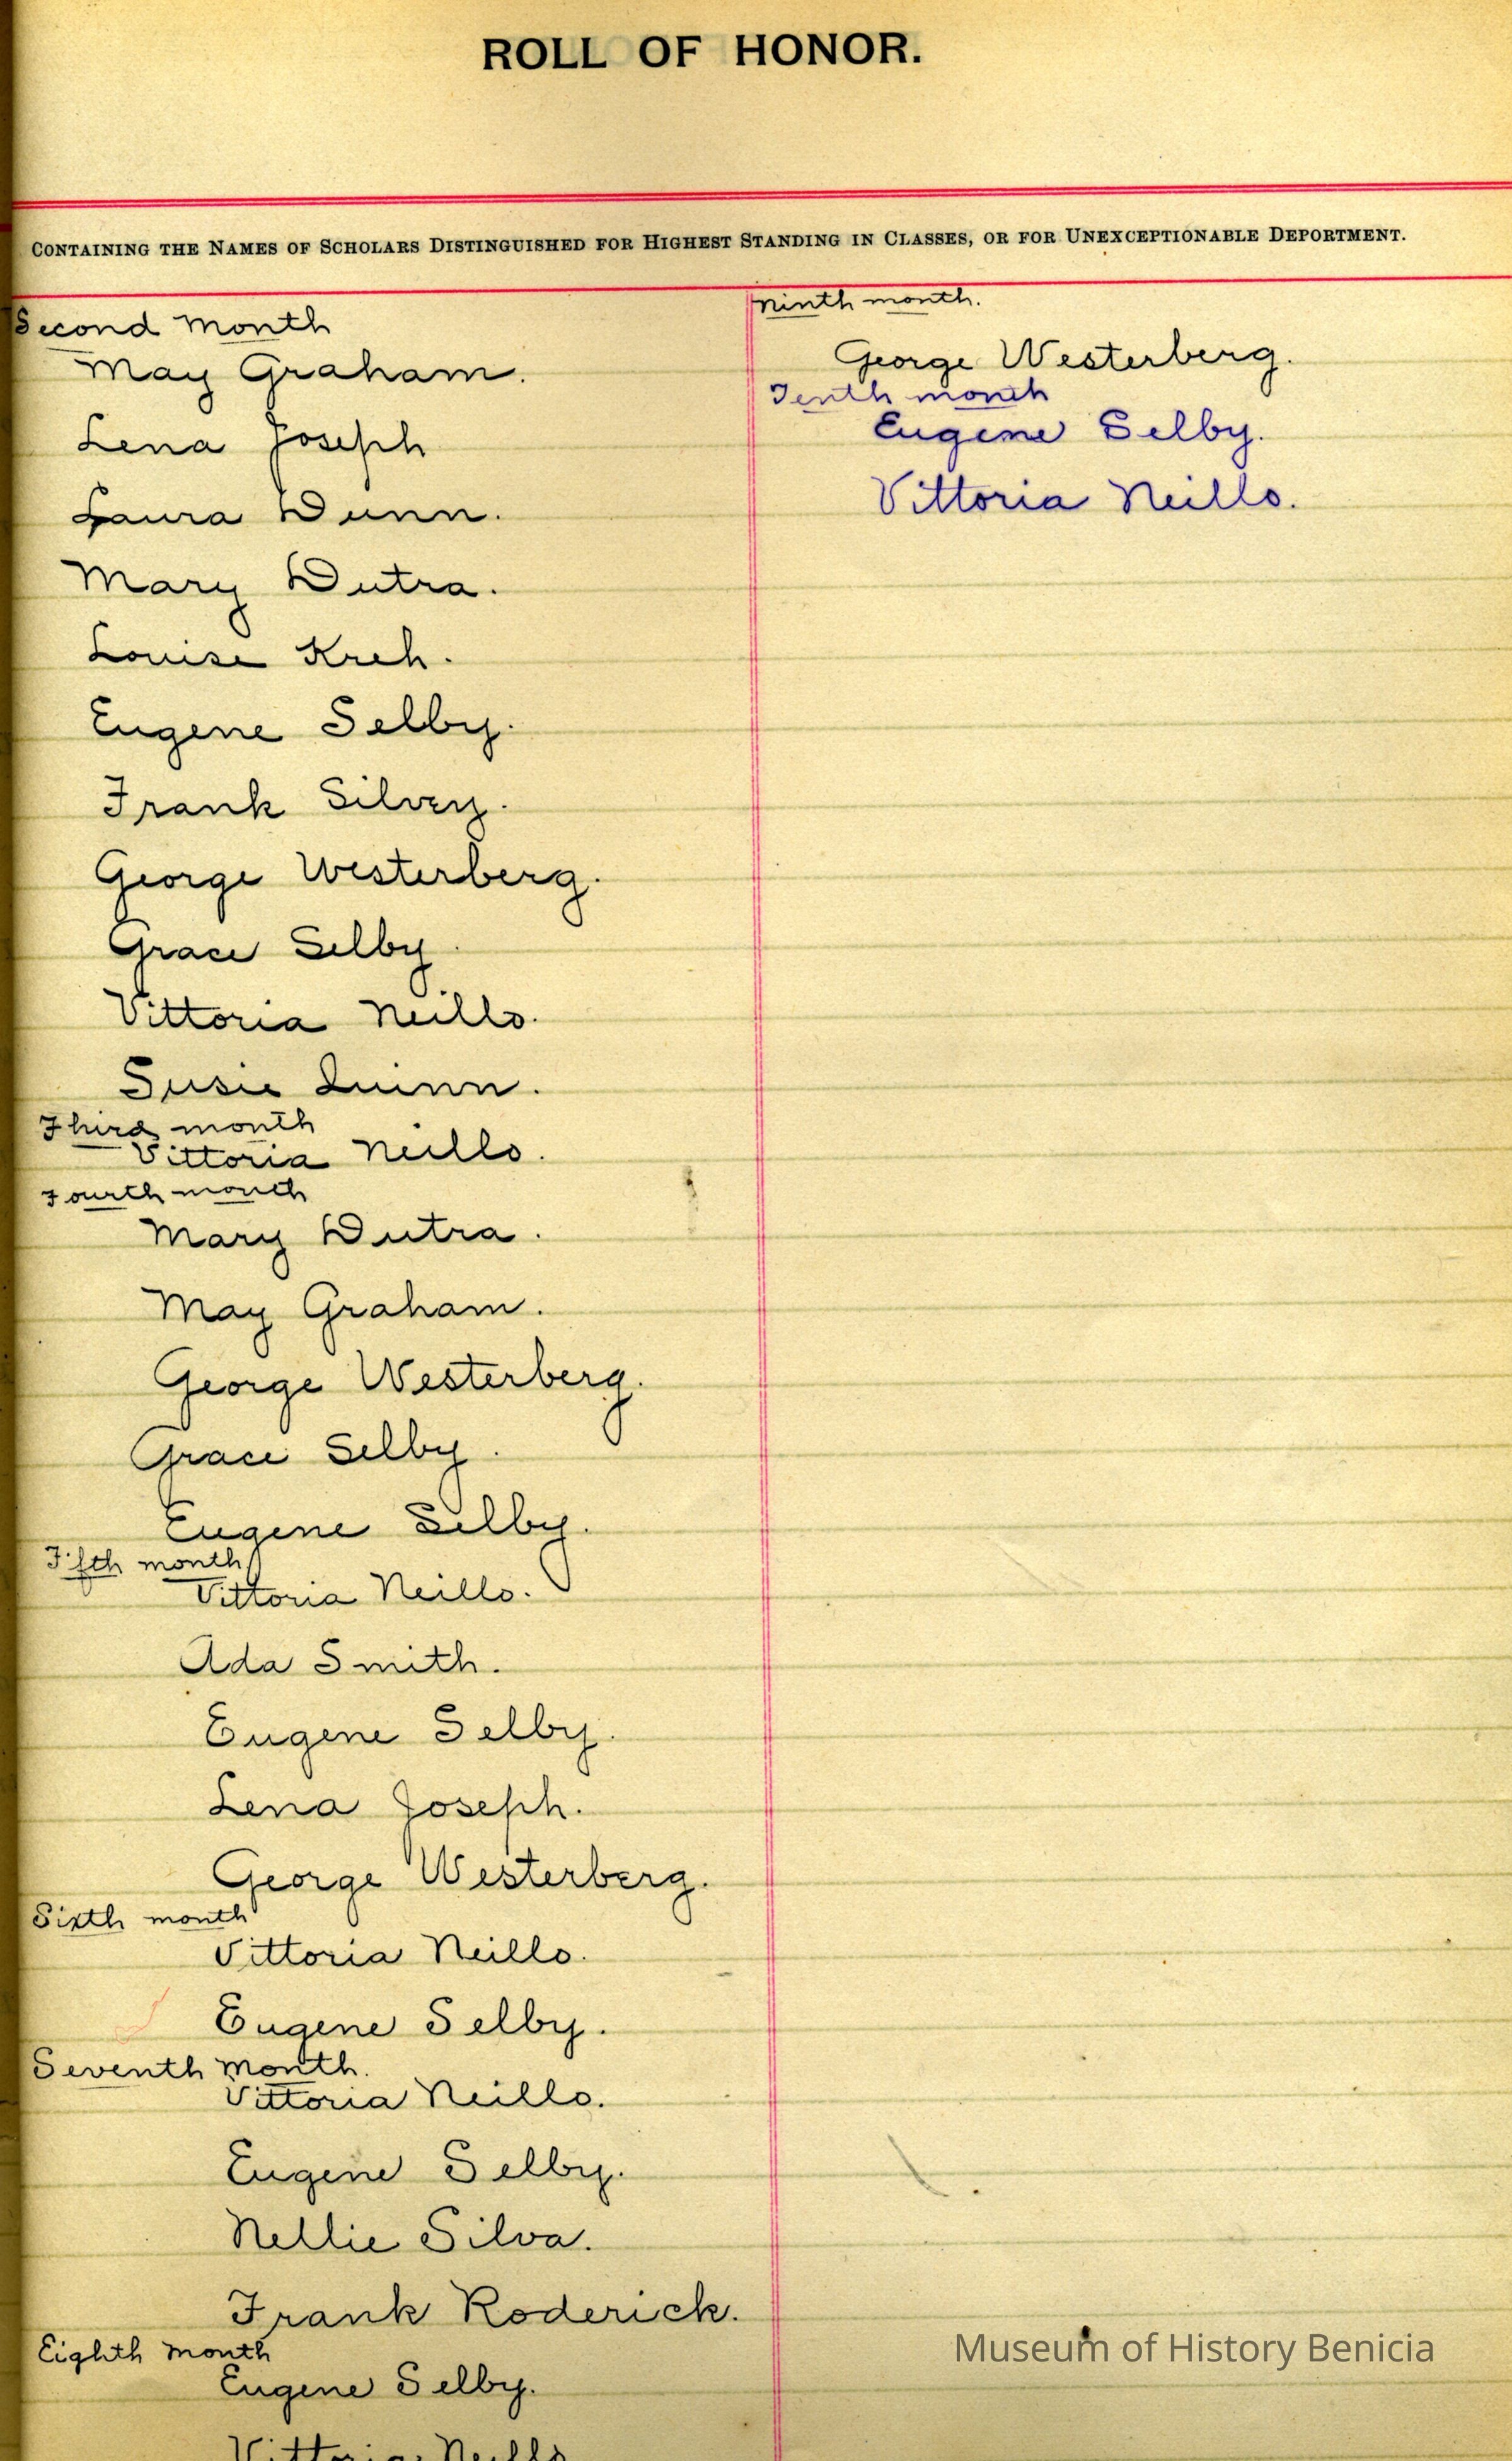 ROLL OF HONOR.
CONTAINING THE NAMES OF SCHOLARS DISTINGUISHED FOR HIGHEST STANDING IN CLASSES, OR FOR UNEXCEPTIONABLE DEPORTMENT.
Second Month
May Graham.
Lena Joseph
Laura Dunn.
Mary Dutra.
Louise Kreh.
Eugene Selby.
Frank Silvey.
George Westerberg.
Grace Selby.
Vittoria Neillo.
Susie Quinn.
Third month
Vittoria Neillo.
Fourth month
Mary Dutra.
May Graham.
George Westerberg.
Grace Selby.
Eugene Selby.
Fifth month
Vittoria Neillo.
Ada Smith.
Eugene Selby.
Lena Joseph.
George Westerberg.
Sixth month
Vittoria Neillo.
Eugene Selby.
Seventh Month.
Vittoria Neillo.
Eugene Selby.
Nellie Silva.
Frank Roderick.
Eighth Month
Eugene Selby.
Vittoria Neillo
Ninth month.
George Westerberg.
Tenth month
Eugene Selby.
Vittoria Neillo.
Museum of History Benicia